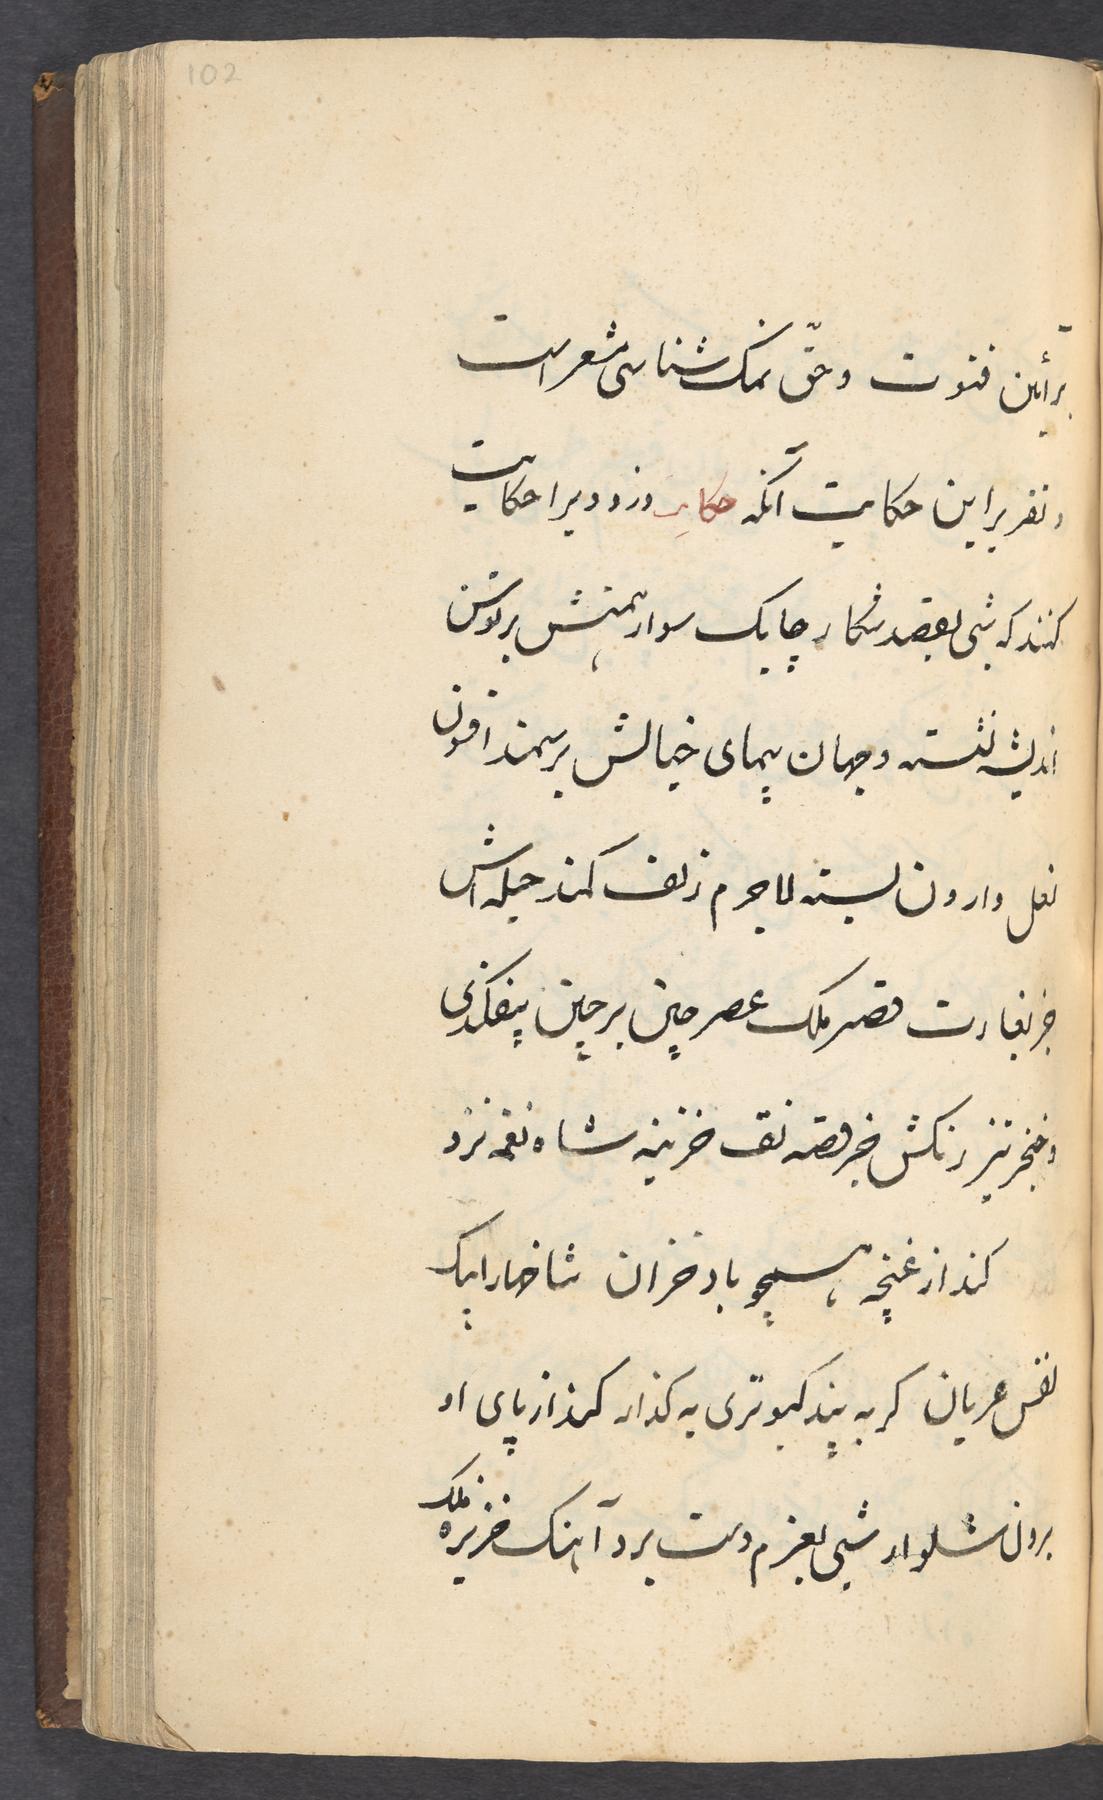 102
بر آئین فتوت و حقّ نمک شناسی مشعر است
و تقریر این حکایت آنکه حکایت دزد دیرا حکایت
کنند که شبی بقصد شکار چابک سوار همتش بر توسن
اندیشه نشسته و جهان پیمای خیالش بر سمند افسون
نعل وارون بسته لاجرم زلف کمند حیله اش
جز بغارت قصر ملک عصر چین بر چین نیفکندی
و خنجر تیز رنکش جز قصه نقب خزینه شاه نغمه نزد
کند از غنچه همچو باد خزان شاخهارا بیک
نفس عریان کر به بیند کبوتری به کذار کند از پای او
برون شلوار شبی بعزم دست برد آهنک خزیره ملک